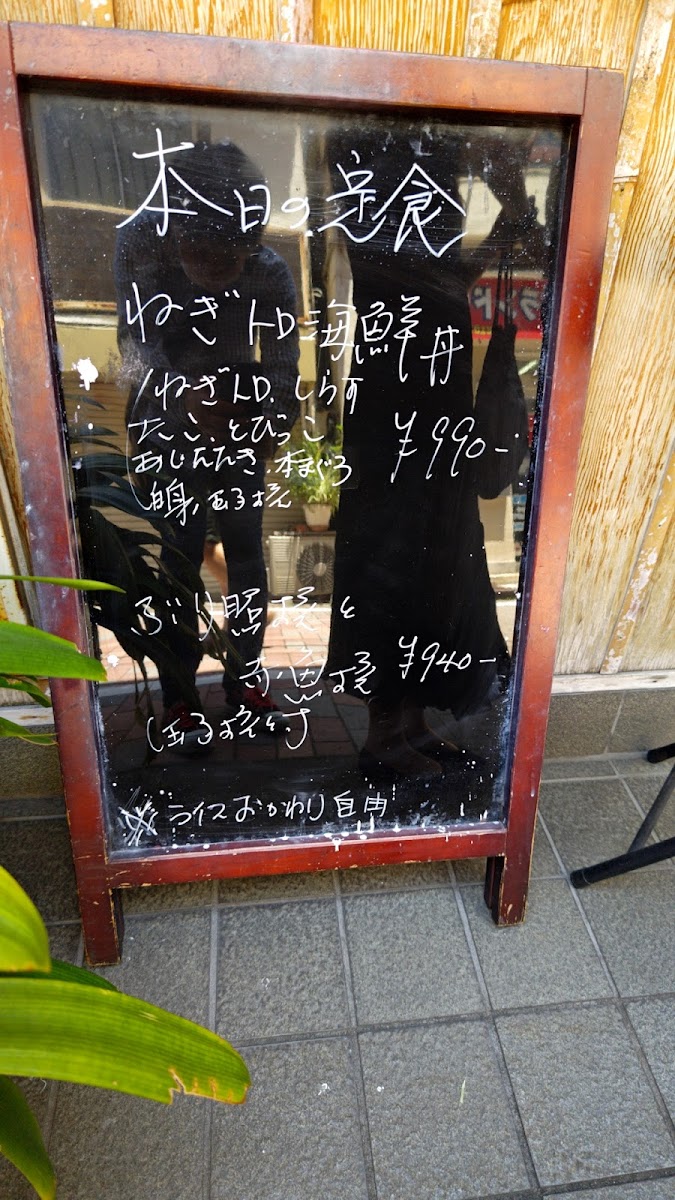 本日の定食
ねぎトロ海鮮丼
ねぎトロ、しらす
たこ、とびっこ
あじたたき、本まぐろ
白身、玉子焼
¥990-
ぶり照焼と
赤魚焼
¥940-
玉子焼付
※ライスおかわり自由
ランド